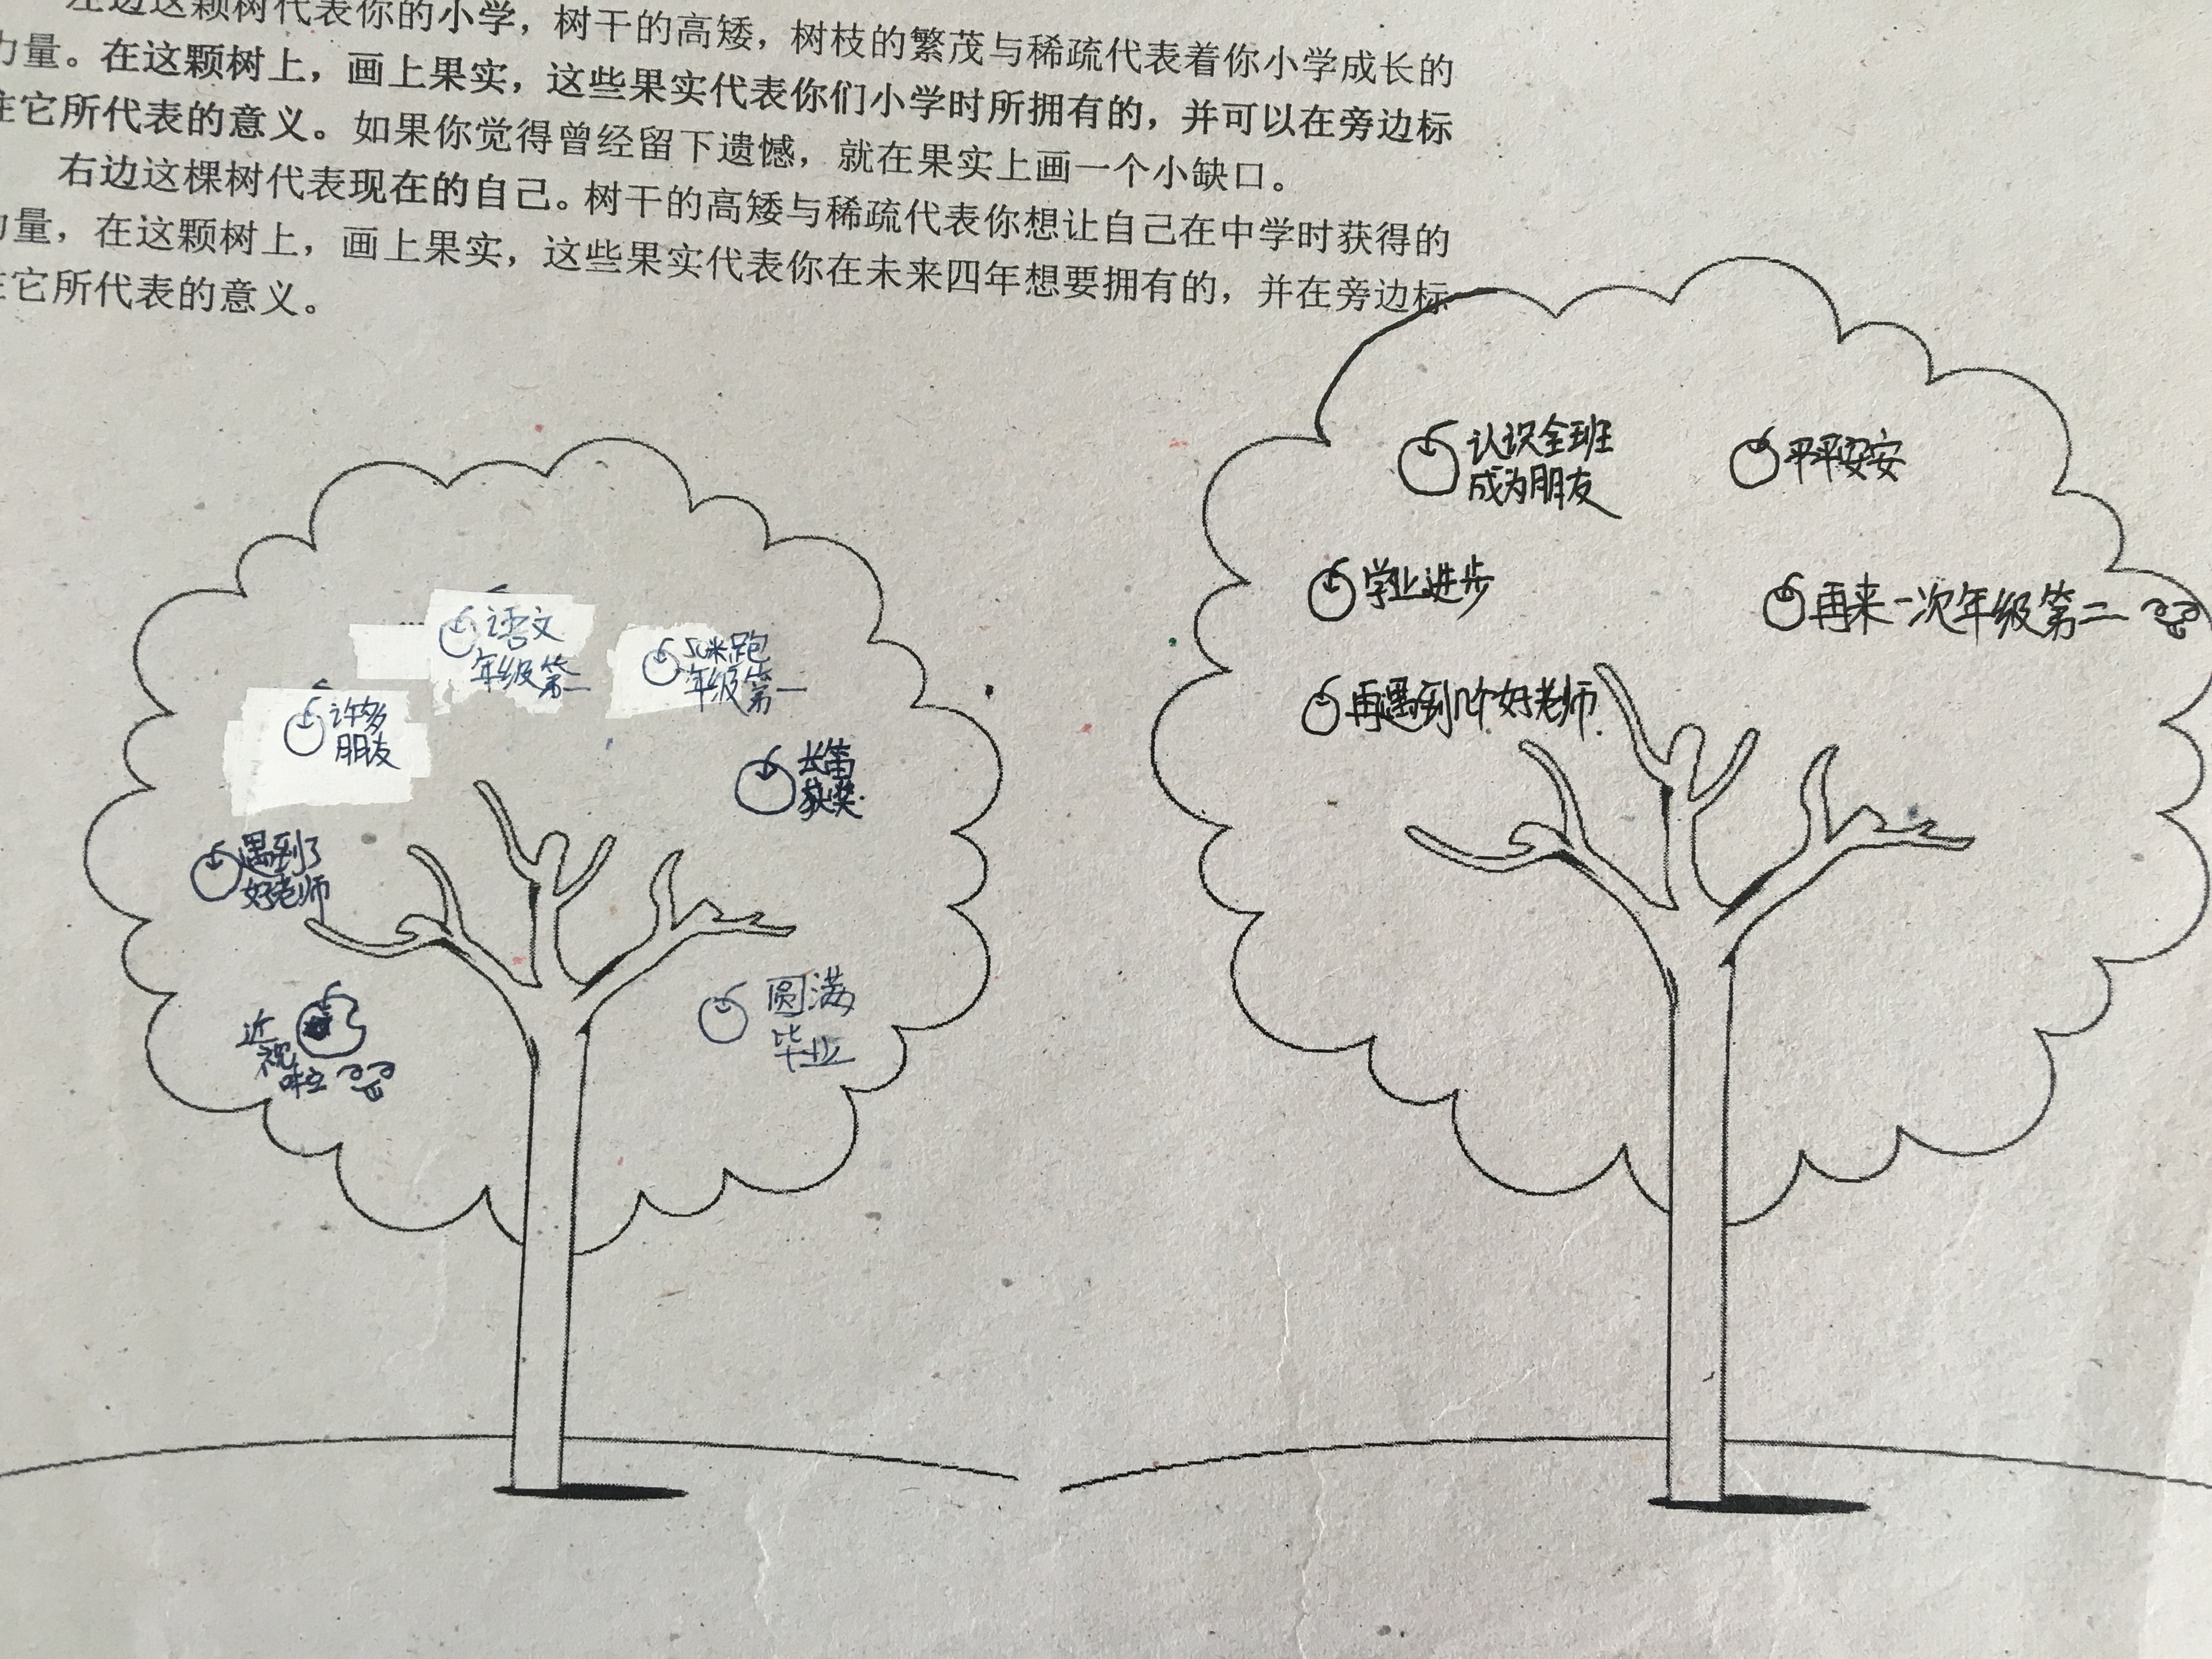 左边这颗树代表你的小学，树干的高矮，树枝的繁茂与稀疏代表着你小学成长的
力量。在这颗树上，画上果实，这些果实代表你们小学时所拥有的，并可以在旁边标
注它所代表的意义。如果你觉得曾经留下遗憾，就在果实上画一个小缺口。
右边这棵树代表现在的自己。树干的高矮与稀疏代表你想让自己在中学时获得的
力量，在这颗树上，画上果实，这些果实代表你在未来四年想要拥有的，并在旁边标
注它所代表的意义。
语文
年级第一
50米跑
年级第一
许多
朋友
长笛
获奖.
遇到了
好老师
近
视
啦
圆满
毕业
认识全班
成为朋友
平平安安
学业进步
再来一次年级第二
再遇到几个好老师.